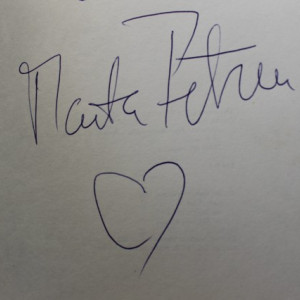 Marta Petreu